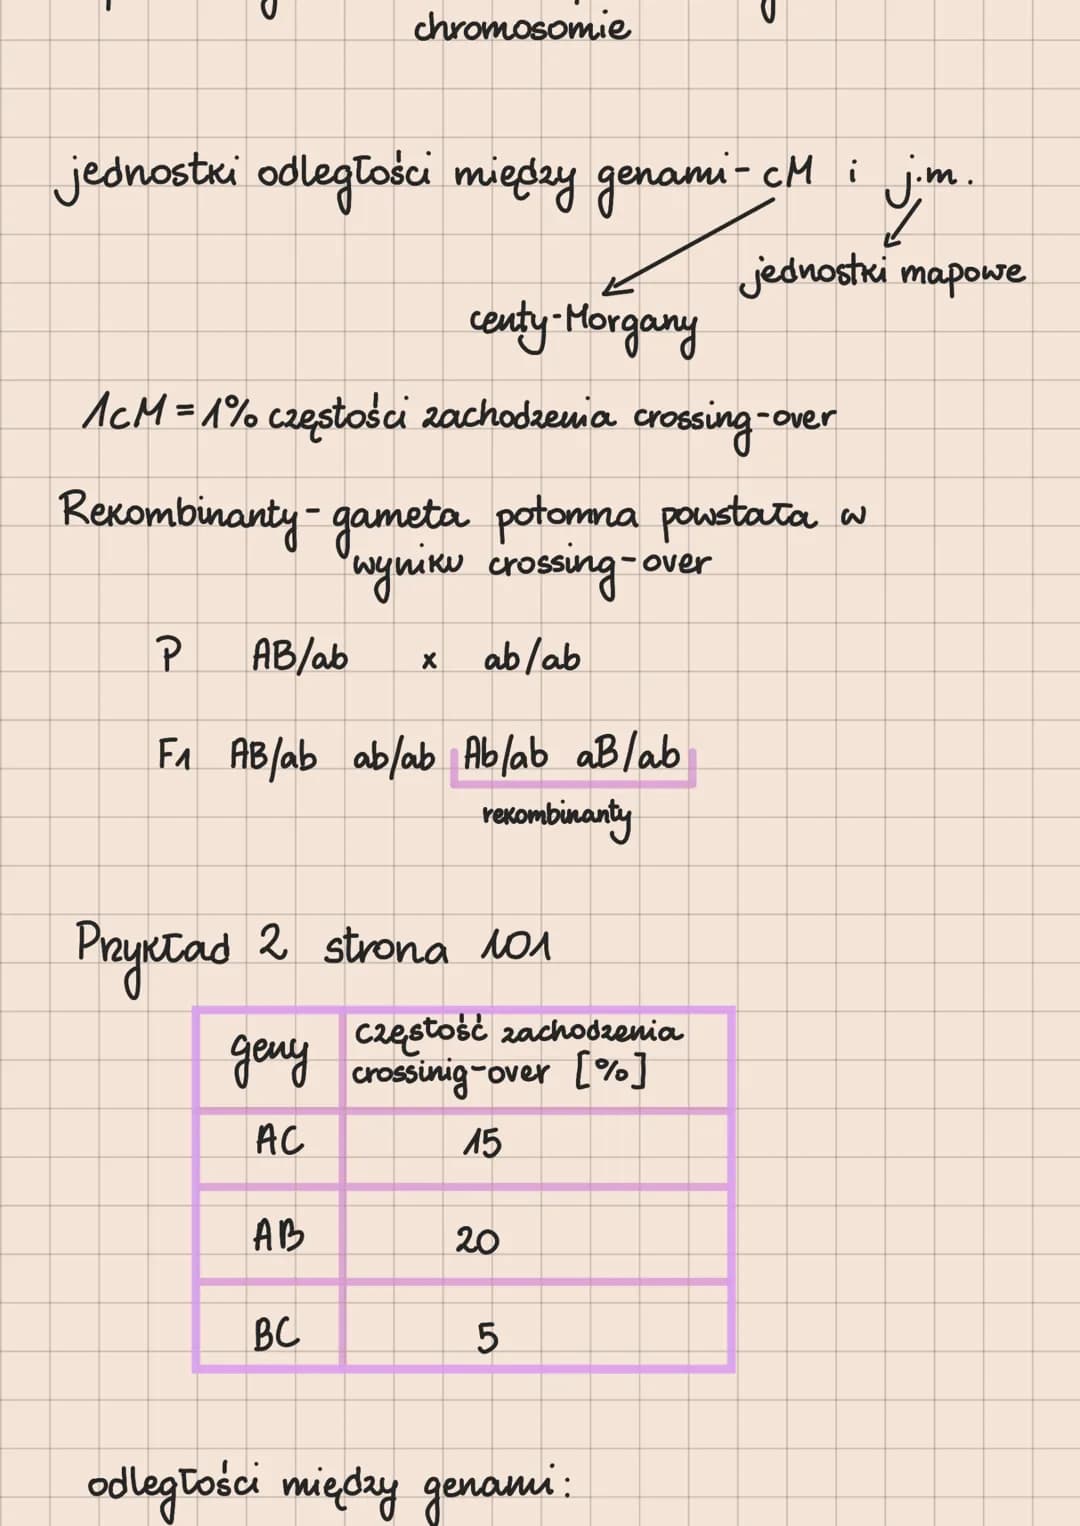 chromosomie
jednostki odległości między genami - cM i j.m.
jednostki mapowe
centy-Morgany
1cM = 1% częstości zachodzenia crossing-over
Rekombinanty - gameta potomna powstała w
wyniku crossing-over
P AB/ab x ab/ab
F1 AB/ab ab/ab Ab/ab aB/ab
rekombinanty
Przykład 2 strona 101
geny
częstość zachodzenia
crossinig-over [%]
AC 15
AB 20
BC 5
odległości między genami: